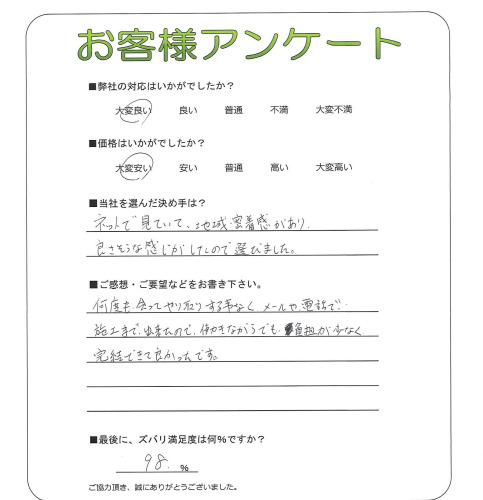 お客様アンケート
■弊社の対応はいかがでしたか？
大変良い 良い 普通 不満 大変不満
■価格はいかがでしたか？
大変安い 安い 普通 高い 大変高い
■当社を選んだ決め手は？
ネットで見ていて、地域密着感があり、
良さそうな感じがしたので選びました。
■ご感想・ご要望などをお書き下さい。
何度も会ってやり取りする事なく、メールや電話で
施工まで出来たので、働きながらでも負担が少なく
完結できて良かったです。
■最後に、ズバリ満足度は何%ですか？
98. %
ご協力頂き、誠にありがとうございました。